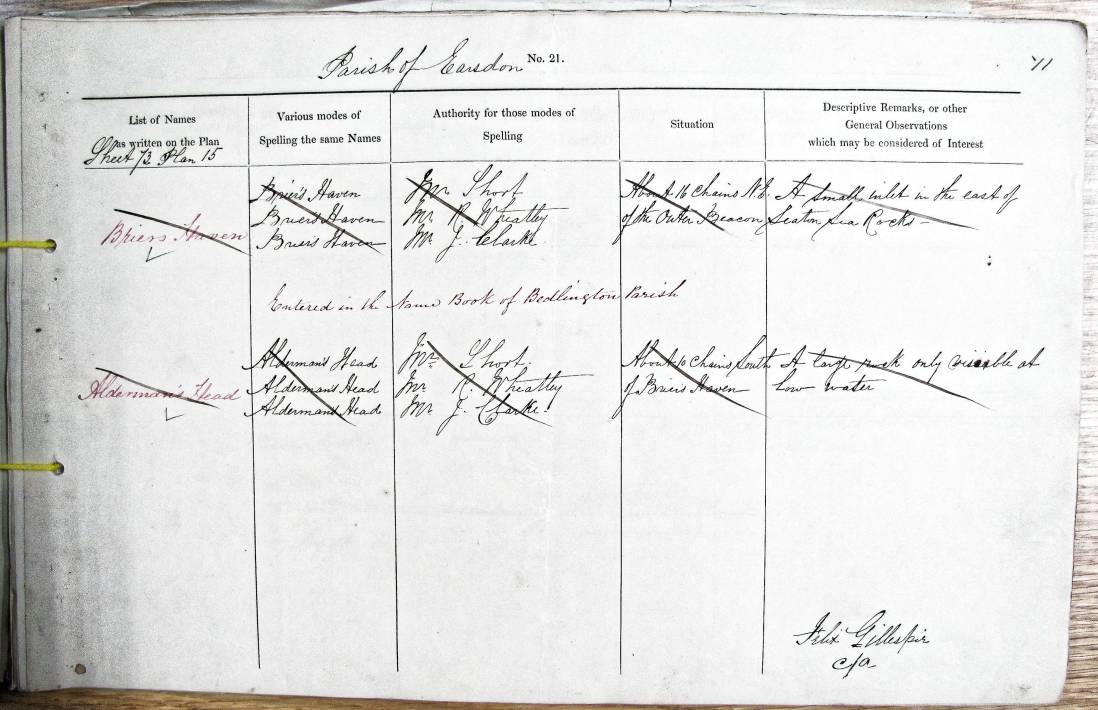 Parish of Earsdon No. 21. 711
List of Names
as written on the Plan
Sheet 73 Plan 15
Various modes of
Spelling the same Names
Authority for those modes of
Spelling
Situation
Descriptive Remarks, or other
General Observations
which may be considered of Interest
Briers Haven
Brier's Haven
Brier's Haven
Brier's Haven
Mr. Short
Mr R. Wheatley
Mr J. Clarke
About 16 Chains N.E.
of the Outer Beacon
A small inlet in the east of
Seaton Sea Rocks
Entered in the Name Book of Bedlington Parish
Alderman's Head
Alderman's Head
Alderman's Head
Alderman's Head
Mr. Short.
Mr R. Wheatley
Mr J. Clarke.
About 10 Chains South
of Brier's Haven
A large rock only visible at
low water
Felix Gillespie
c/a